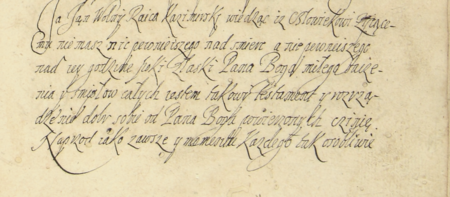 Ja Jan Wolny Raica Kazimirski wiedząc iz człowiekowi żyiące-
mu nic niemasz nic pewnieiszego nad smierc a nie pewnieiszego
nad iey godzinę Pana Boga miłego bacze-
nia y smysłow całych iestem takowy testament y rozrzą-
dzenie dobr sobie od Pana Boga powierzonych czynię
Naprzod iako zawsze y momentu każdego tak osobliwie